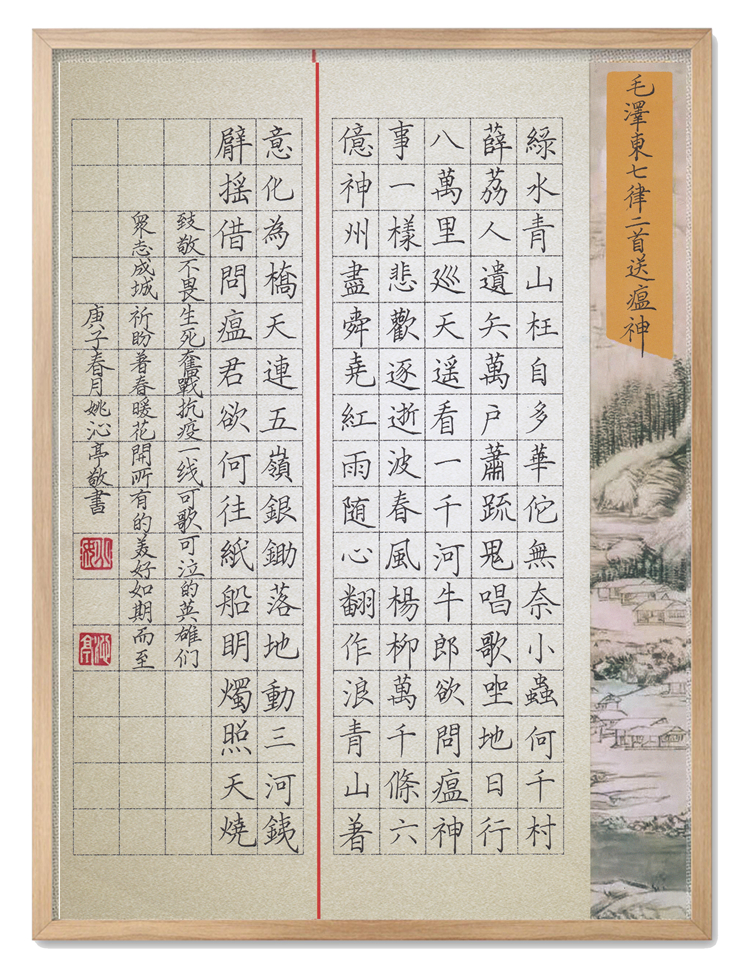 毛澤東七律二首送瘟神
綠水青山枉自多華佗無奈小蟲何千村
薛荔人遺矢萬戶蕭疏鬼唱歌坐地日行
八萬里巡天遙看一千河牛郎欲問瘟神
事一樣悲歡逐逝波春風楊柳萬千條六
億神州盡舜堯紅雨随心翻作浪青山著
意化為橋天連五嶺銀鋤落地動三河銕
臂搖借問瘟君欲何往紙船明燭照天燒
致敬不畏生死奮戰抗疫一线可歌可泣的英雄们
眾志成城 祈盼著春暖花開所有的美好如期而至
庚子春月姚沁亭敬書
沁亭